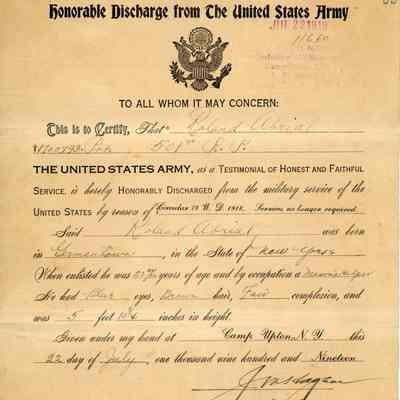 Honorable Discharge from The United States Army
TO ALL WHOM IT MAY CONCERN:
This is to Certify, That Roland Abrial
THE UNITED STATES ARMY, as a TESTIMONIAL OF HONEST AND FAITHFUL
SERVICE, is hereby HONORABLY DISCHARGED from the military service of the
UNITED STATES by reason of Circular 77 W. D. 1918. Services no longer required
Said Roland Abrial was born
in Germantown, in the State of New York
When enlisted he was years of age and by occupation a
He had Blue eyes, Brown hair, Fair complexion, and
was 5 feet inches in height.
Given under my hand at Camp Upton, N. Y. this
22 day of July one thousand nine hundred and Nineteen